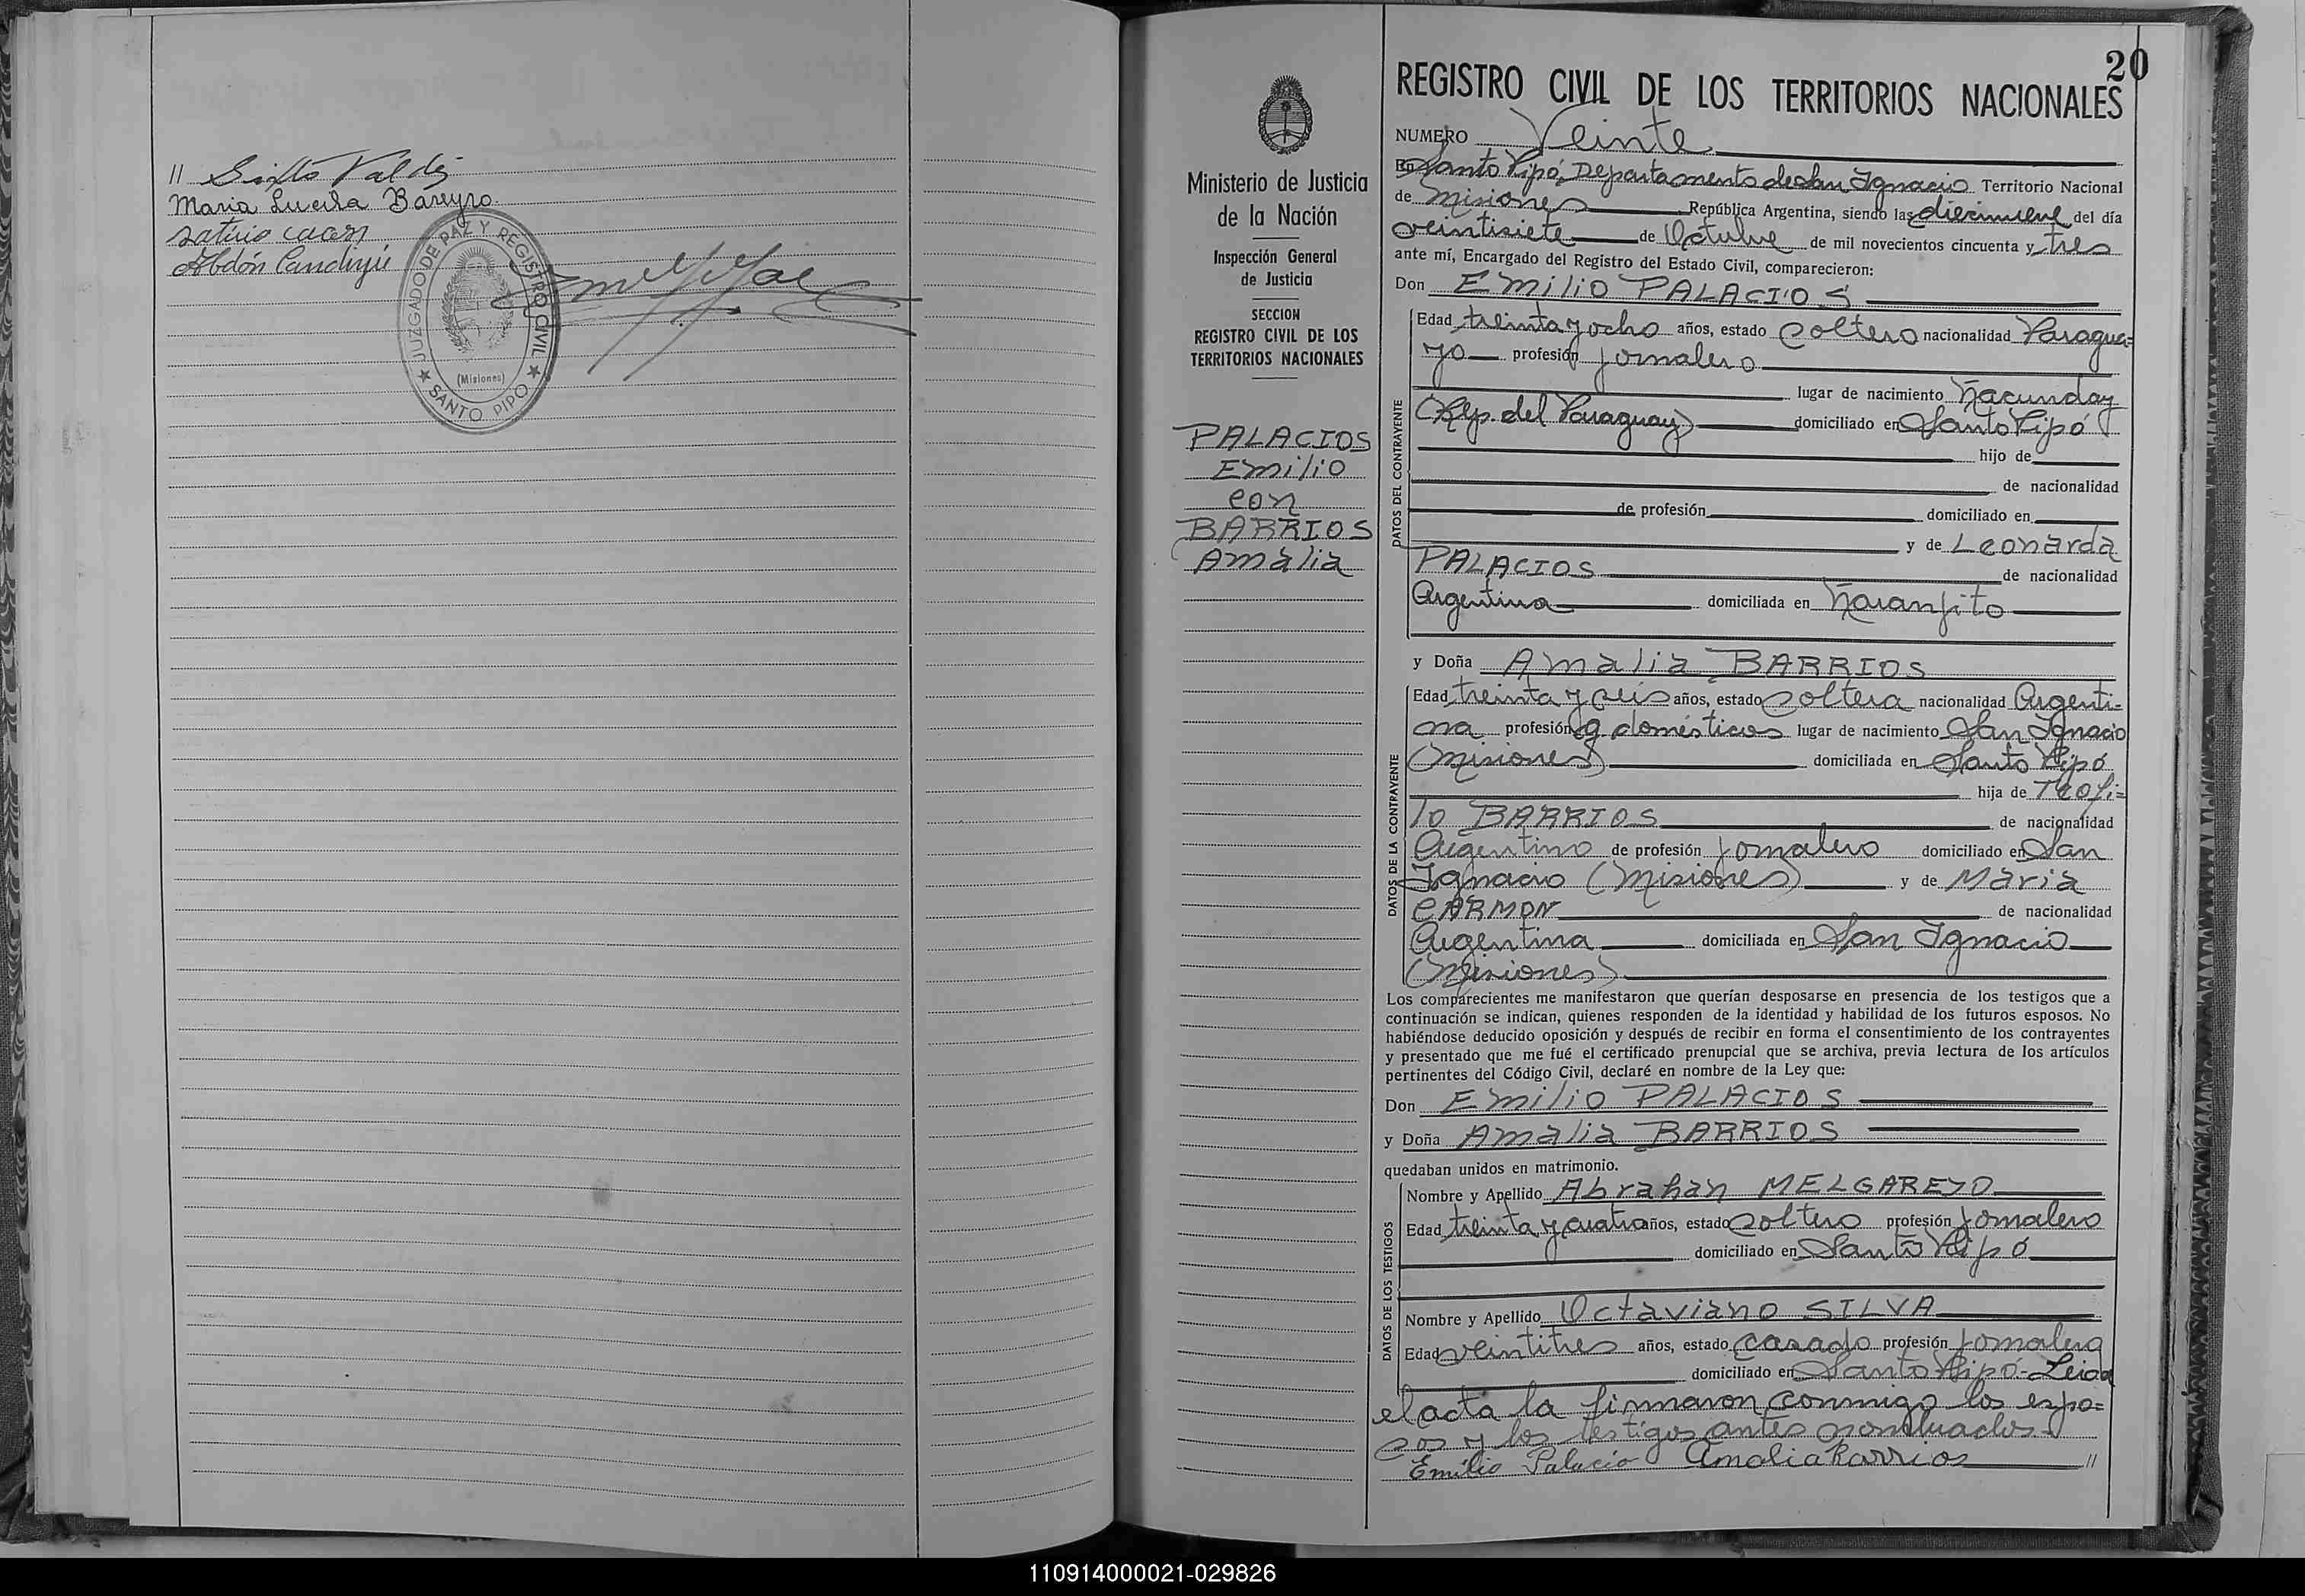 " Sixto Valdéz
Maria Lucila Bareyro
Abdón Canduyú
JUZGADO DE PAZ Y REGISTRO CIVIL
(Misiones)
★ SANTO PIPO ★
20
Ministerio de Justicia
de la Nación
Inspección General
de Justicia
SECCION
REGISTRO CIVIL DE LOS
TERRITORIOS NACIONALES
PALACIOS
Emilio
con
BARRIOS
Amalia
REGISTRO CIVIL DE LOS TERRITORIOS NACIONALES
NUMERO Veinte
En Santo Pipó, Departamento de San Ignacio Territorio Nacional
de Misiones República Argentina, siendo las diecinueve del día
veintisiete de Octubre de mil novecientos cincuenta y tres
ante mí, Encargado del Registro del Estado Civil, comparecieron:
Don Emilio PALACIOS
DATOS DEL CONTRAYENTE
Edad treinta y ocho años, estado soltero nacionalidad Paragua=
yo profesión jornalero
lugar de nacimiento Ñacunday
(Rep. del Paraguay) domiciliado en Santo Pipó
hijo de
de nacionalidad
de profesión domiciliado en
y de Leonarda
PALACIOS de nacionalidad
Argentina domiciliada en Naranjito
y Doña Amalia BARRIOS
DATOS DE LA CONTRAYENTE
Edad treinta y seis años, estado soltera nacionalidad Argenti=
na profesión q. domésticos lugar de nacimiento San Ignacio
(Misiones) domiciliada en Santo Pipó
hija de Teofi=
lo BARRIOS de nacionalidad
Argentino de profesión jornalero domiciliado en San
Ignacio (Misiones) y de Maria
CARMON de nacionalidad
Argentina domiciliada en San Ignacio
(Misiones)
Los comparecientes me manifestaron que querían desposarse en presencia de los testigos que a
continuación se indican, quienes responden de la identidad y habilidad de los futuros esposos. No
habiéndose deducido oposición y después de recibir en forma el consentimiento de los contrayentes
y presentado que me fué el certificado prenupcial que se archiva, previa lectura de los artículos
pertinentes del Código Civil, declaré en nombre de la Ley que:
Don Emilio PALACIOS
y Doña Amalia BARRIOS
quedaban unidos en matrimonio.
DATOS DE LOS TESTIGOS
Nombre y Apellido Abrahan MELGAREJO
Edad treinta y cuatro años, estado soltero profesión jornalero
domiciliado en Santo Pipó
Nombre y Apellido Octaviano SILVA
Edad veintitres años, estado casado profesión jornalero
domiciliado en Santo Pipó - Leida
el acta la firmaron conmigo los espo=
sos y los testigos antes nombrados.-
Emilio Palacio Amalia Barrios "
110914000021-029826